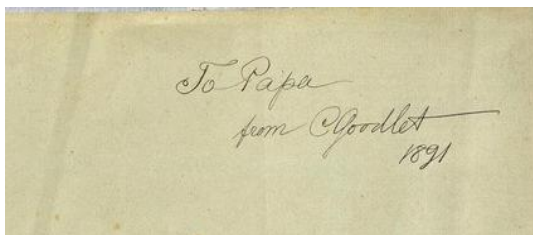 To Papa
from C Goodlet
1891